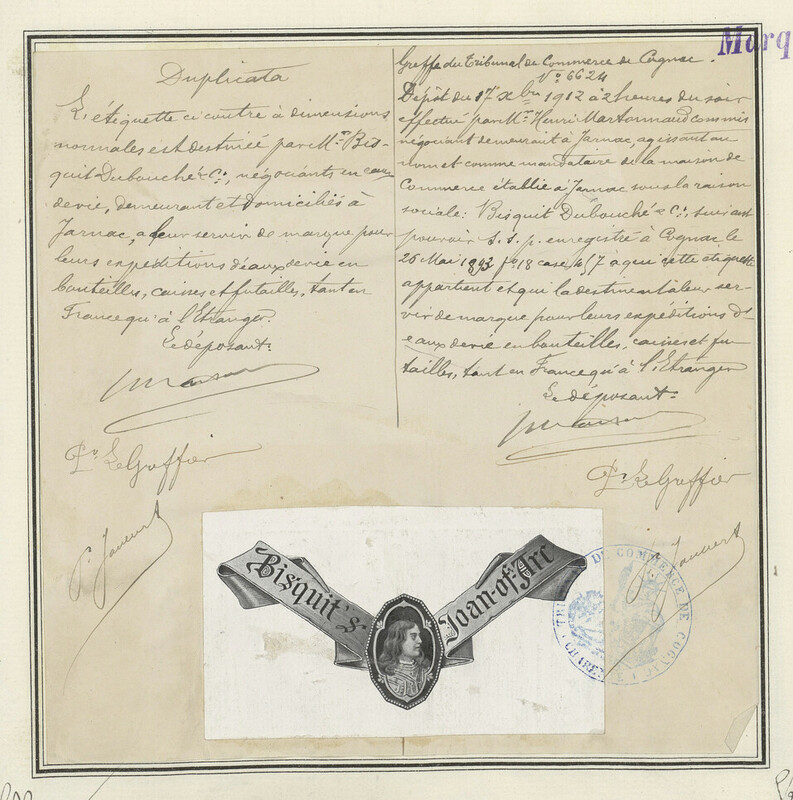 Marq
Duplicata
L'étiquette ci contre à dimensions
normales est destinée par Mrs Bis-
quit Dubouché & Cie, négociants en eaux
devie, demeurant et domiciliés à
Jarnac, a leur servir de marque pour
leurs expéditions d'eaux devie en
bouteilles, caisses et futailles, tant en
France qu'à l'Etranger.
Le déposant:
Pr Le Greffier
Greffe du Tribunal de Commerce de Cognac.
No 6624
Dépôt du 17 Xbre 1912 à 2 heures du soir
effectué par Mr Henri Mar commis
négociant demeurant à Jarnac, agissant au
nom et comme mandataire de la maison de
Commerce établie à Jarnac sous la raison
sociale: Bisquit Dubouché & Cie, suivant
pouvoir s. s. p. enregistré à Cognac le
26 Mai fo 18 case a qui cette étiquette
appartient et qui la destinent a leur ser-
vir de marque pour leurs expéditions d'
eaux devie en bouteilles, caisses et fu
tailles, tant en France qu'à l'Etranger
Le déposant:
Pr Le Greffier
Bisquit's Joan-of-Arc
DE COMMERCE DE COGNAC